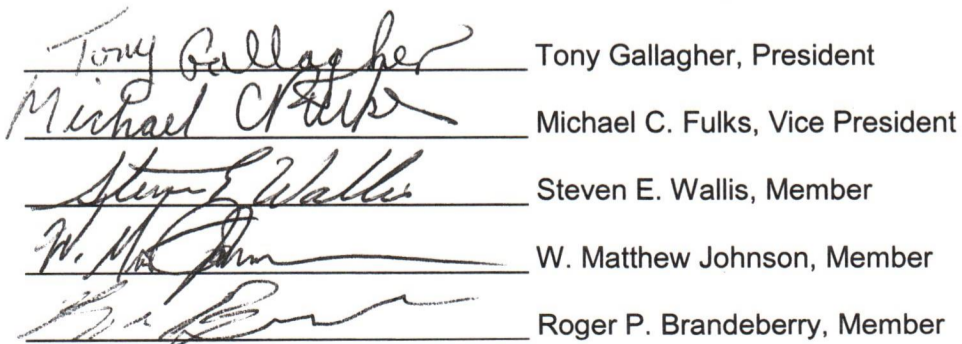 Tony Gallagher Tony Gallagher, President
Michael C Fulks Michael C. Fulks, Vice President
Steven E Wallis Steven E. Wallis, Member
W. W. Matthew Johnson, Member
Roger P. Brandeberry, Member